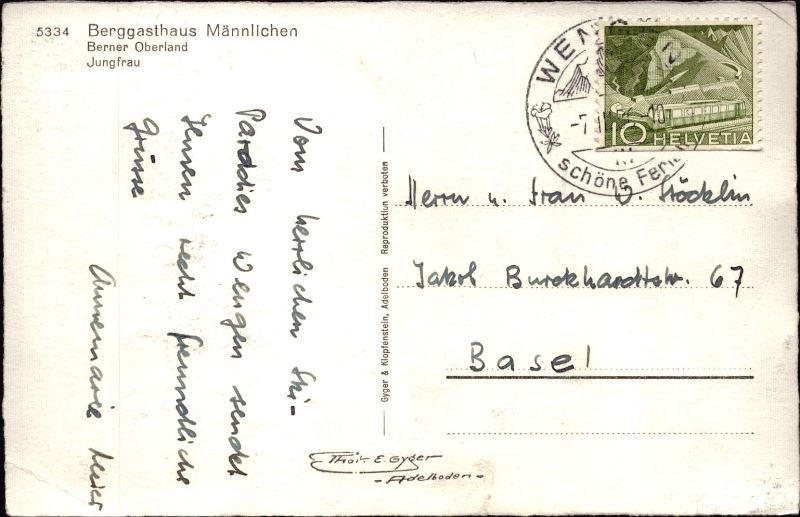 5334 Berggasthaus Männlichen
Berner Oberland
Jungfrau
Vom herrlichen Ski-
Paradies Wengen sendet
Ihnen recht freundliche
Grüsse
Annemarie Meier
Gyger & Klopfenstein, Adelboden Reproduktion verboten
WEN
-7
10
schöne Ferien
10 HELVETIA
Herrn u. Frau O. Stöcklin
Jakob Burckhardtstr. 67
Basel
Phot. E. Gyger
- Adelboden -